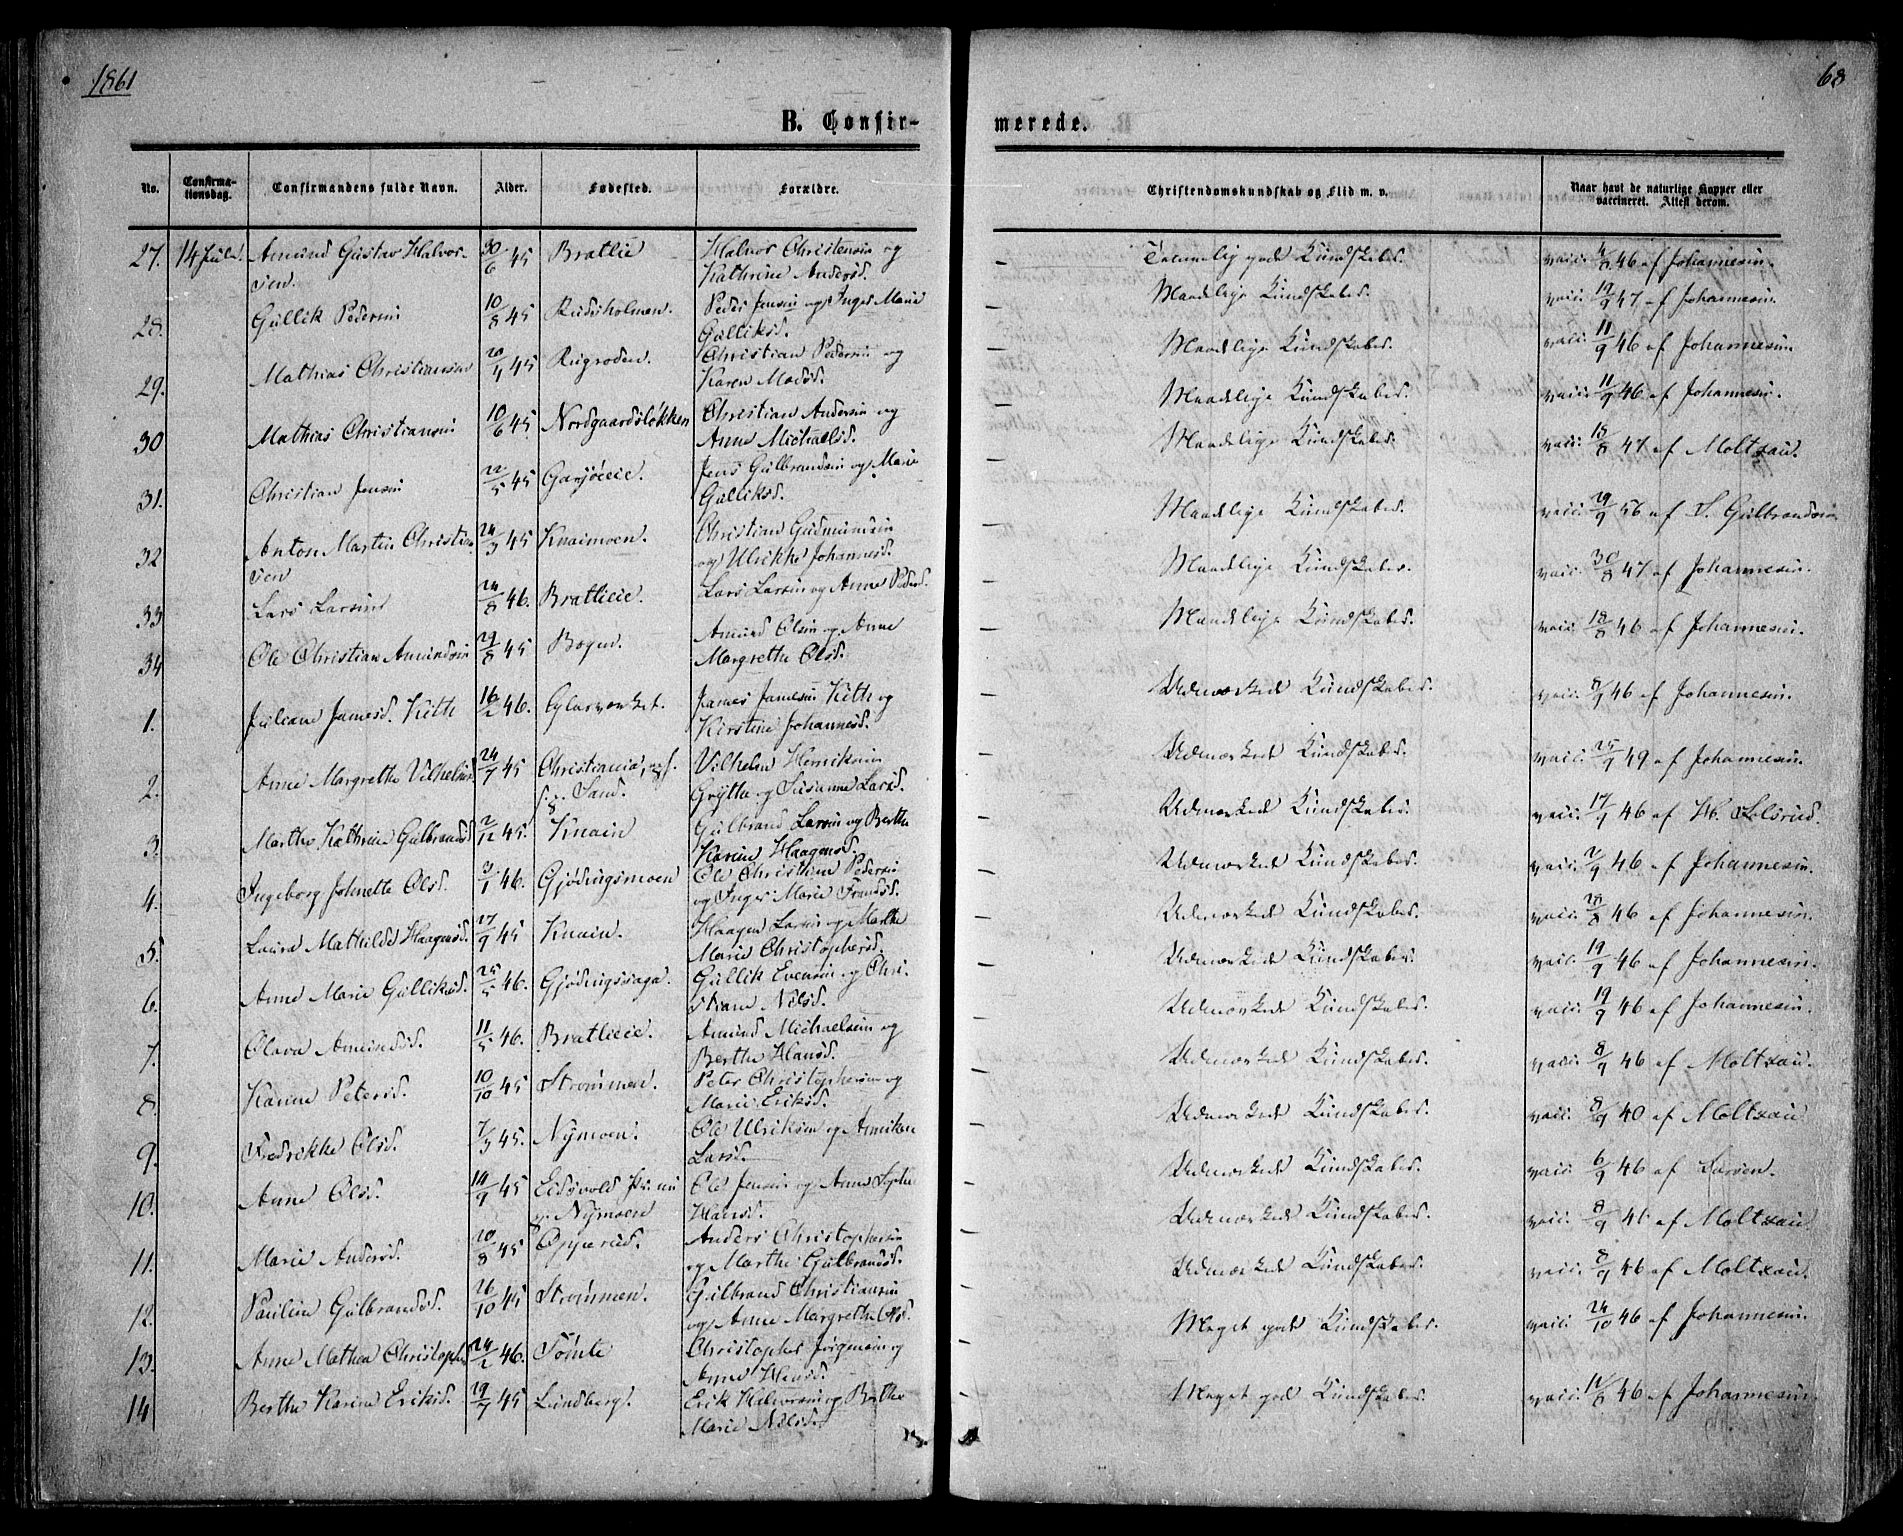 1861
68
B. Confir-
merede.
No.
Confirma-
tionsdag.
Confirmandens fulde Navn.
Alder.
Fødested.
Forældre.
Christendomskundskab og Flid m. v.
Naar havt de naturlige Kopper eller
vaccineret. Attest derom.
27. 14 Juli. Amund Gustav Halvor- 30/6 45 Bratlie Halvor Christensen og – Temmelig gode Kundskaber. vacc. 4/8 46 af Johannesen.
sen. Kathrine Andersd.
28. Gullik Pedersen 10/8 45 Rudsholmen. Peder Jensen og Inger Marie – Maadelige Kundskaber. vacc. 19/9 47 af Johannesen.
Gulliksd.
29. Mathias Christiansen 20/4 45 Rugroden. Christian Pedersen og – Maadelige Kundskaber. vacc. 11/9 46 af Johannesen
Karen Madsd.
30 Mathias Christiansen 10/6 45. Nordgaardsløkken Christian Andersen og – Maadelige Kundskaber. vacc. 11/9 46 af Johannesen.
Anne Michaelsd.
31. Christian Jensen 22/5 45 Garsjøeie. Jens Gulbrandsen og Marie – Maadelige Kundskaber. vacc. 15/8 47 af Moltzau.
Gulliksd.
32 Anton Martin Christian 24/3 45 Knaimoen. Christian Gudmundsen – Maadelige Kundskaber. vacc. 29/9 56 af S. Gulbrandsen
sen og Ulrikke Johannesd.
33 Lars Larsen 24/8 46. Bratlieie. Lars Larsen og Anne Pedersd. – Maadelige Kundskaber. vacc. 30/8 47 af Johannesen.
34 Ole Christian Amundsen 29/8 45 Bogen. Amund Olsen og Anne – Maadelige Kundskaber. vacc. 18/8 46 af Johannesen.
Margrethe Olsd.
1. Juliane Jamesd. Keth 16/2 46. Glasværket. James Jamesen Keth og – Udmærkede Kundskaber. vacc. 8/9 46 af Johannesen.
Kirstine Johannesd.
2. Anne Margrethe Vilhelmsd. 24/7 45 Christiania, Vilhelm Henriksen – Udmærkede Kundskaber. vacc. 25/9 49 af Johannesen.
Sand. Grythe og Susanne Larsd.
3. Marthe Kathrine Gulbrandsd. 2/12 45. Knain Gulbrand Larsen og Berthe – Udmærkede Kundskaber. vacc. 17/9 46 af H. Kolsrud.
Karine Haagensd.
4. Ingeborg Johnette Olsd. 3/1 46. Gjødingsmoen Ole Christian Pedersen – Udmærkede Kundskaber. vacc. 2/9 46 af Johannesen.
og Inger Marie Frandsd.
5. Laura Mathilde Haagensd. 27/9 45 Knain. Haagen Larsen og Marthe – Udmærkede Kundskaber. vacc. 28/8 46 af Johannesen.
Marie Christophersd.
6. Anne Marie Gulliksd. 25/5 46. Gjødingssaga. Gullik Evensen og Chri- – Udmærkede Kundskaber. vacc. 19/9 46 af Johannesen.
stiane Nilsd.
7. Olava Amundsd. 11/5 46. Bratlieie. Amund Michaelsen og – Udmærkede Kundskaber. vacc. 19/9 46 af Johannesen.
Berthe Hansd.
8. Karine Petersd. 10/10 45 Strømmen. Peter Christophersen og – Udmærkede Kundskaber. vacc. 8/9 46 af Moltzau
Marie Eriksd.
9. Fredrikke Olsd. 7/3 45. Nymoen. Ole Ulriksen og Anniken – Udmærkede Kundskaber. vacc. 8/9 40 af Moltzau
Larsd.
10. Anne Olsd. 14/9 45 Eidsvold Ole Jensen og Anne Sophie – Udmærkede Kundskaber. vacc. 6/9 46 af Larsen.
Nymoen Hansd.
11. Marie Andersd. 20/8 45 Opperud. Anders Christophersen – Udmærkede Kundskaber. vacc. 8/9 46 af Moltzau
og Marthe Gulbrandsd.
12. Pauline Gulbrandsd. 26/10 45 Strømmen. Gulbrand Christiansen – Udmærkede Kundskaber. vacc. 8/9 46 af Moltzau.
og Anne Margrethe Olsd.
13. Anne Mathea Christophersd. 24/2 46. Tømte Christopher Jørgensen og – Meget gode Kundskaber. vacc. 24/10 46 af Johannesen.
Anne Hansd.
14 Berthe Karine Eriksd. 29/7 45 Lundberg. Erik Halvorsen og Berthe – Meget gode Kundskaber. vacc. 10/8 46 af Johannesen.
Marie Nilsd.